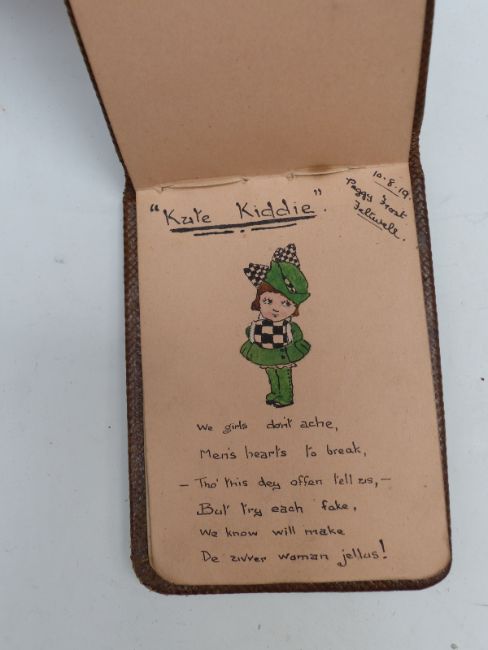 10·8·19.
Peggy Frost
Feltwell.
"Kute Kiddie".
We girls don't ache,
Men's hearts to break,
— Tho' this dey offen tell us,—
But try each fake,
We know will make
De uvver woman jellus!